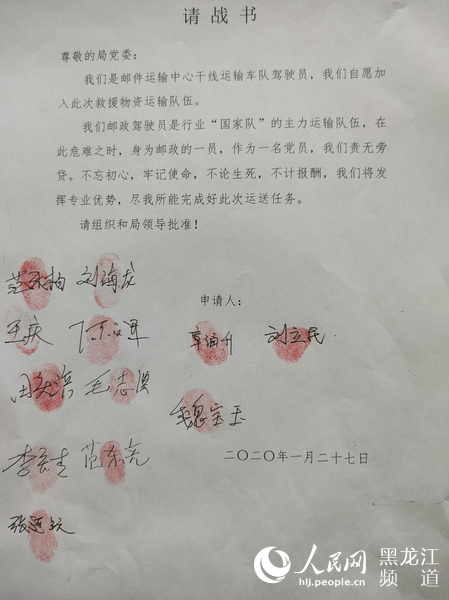 请战书
尊敬的局党委：
我们是邮件运输中心干线运输车队驾驶员，我们自愿加
入此次救援物资运输队伍。
我们邮政驾驶员是行业“国家队”的主力运输队伍，在
此危难之时，身为邮政的一员，作为一名党员，我们责无旁
贷。不忘初心，牢记使命，不论生死，不计报酬，我们将发
挥专业优势，尽我所能完成好此次运送任务。
请组织和局领导批准！
刘海龙
申请人：
王庆
刘立民
毛志滨
魏宝玉
范东亮
二〇二〇年一月二十七日
人民网 黑龙江
hlj.people.cn 频道